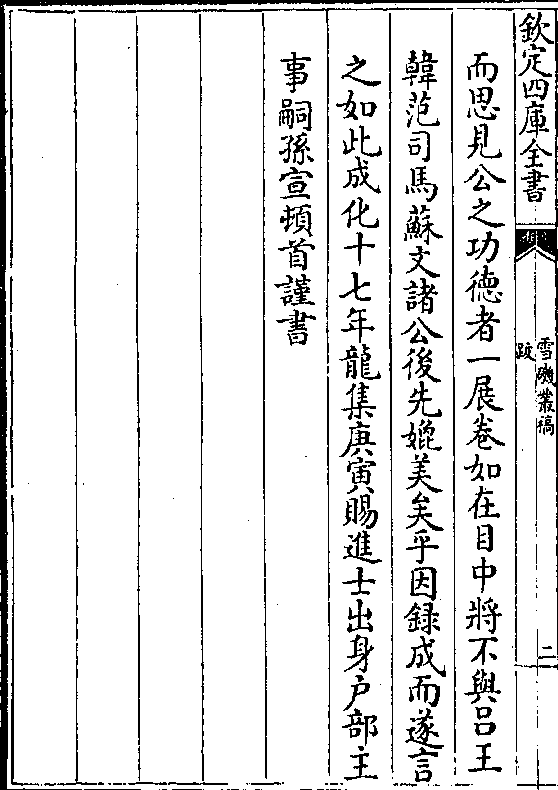 欽定四庫全書
雪磯叢稿
跋
二
而思見公之功徳者一展卷如在目中將不與吕王
韓范司馬蘇文諸公後先媲美矣乎因録成而遂言
之如此成化十七年龍集庚寅賜進士出身户部主
事嗣孫宣頓首謹書